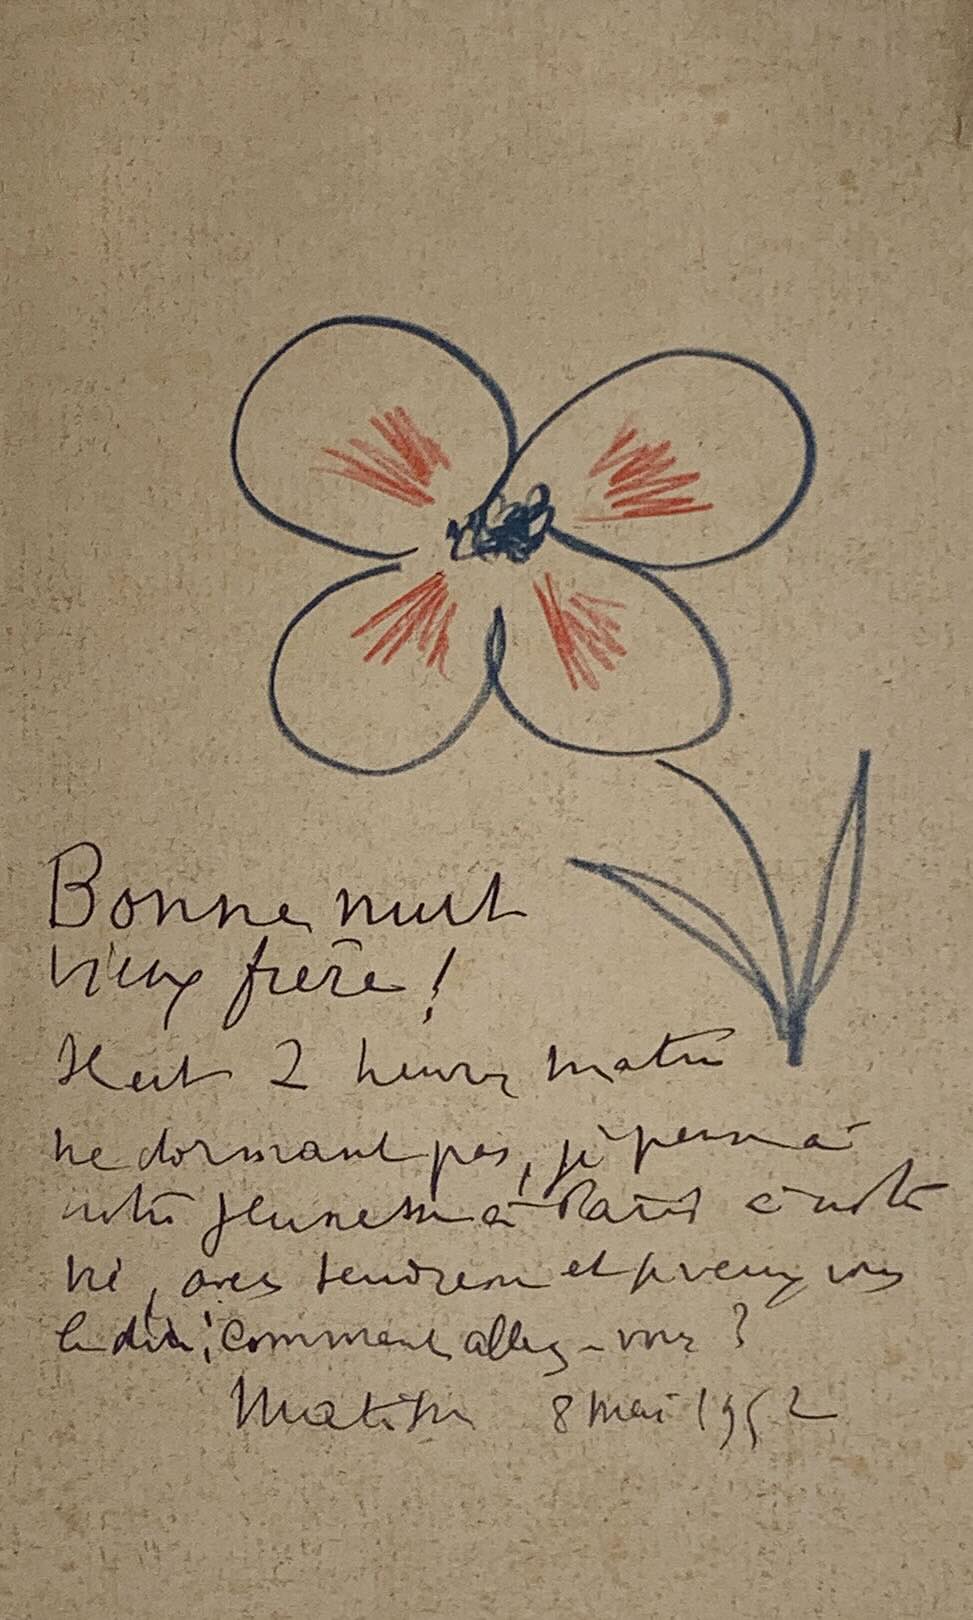 Bonne nuit
vieux frère !
Il est 2 heures matin
ne dormant pas, je pense à
notre jeunesse à Paris à notre
vie, avec tendresse et je veux vous
le dire ; comment allez-vous ?
Matisse 8 mai 1952